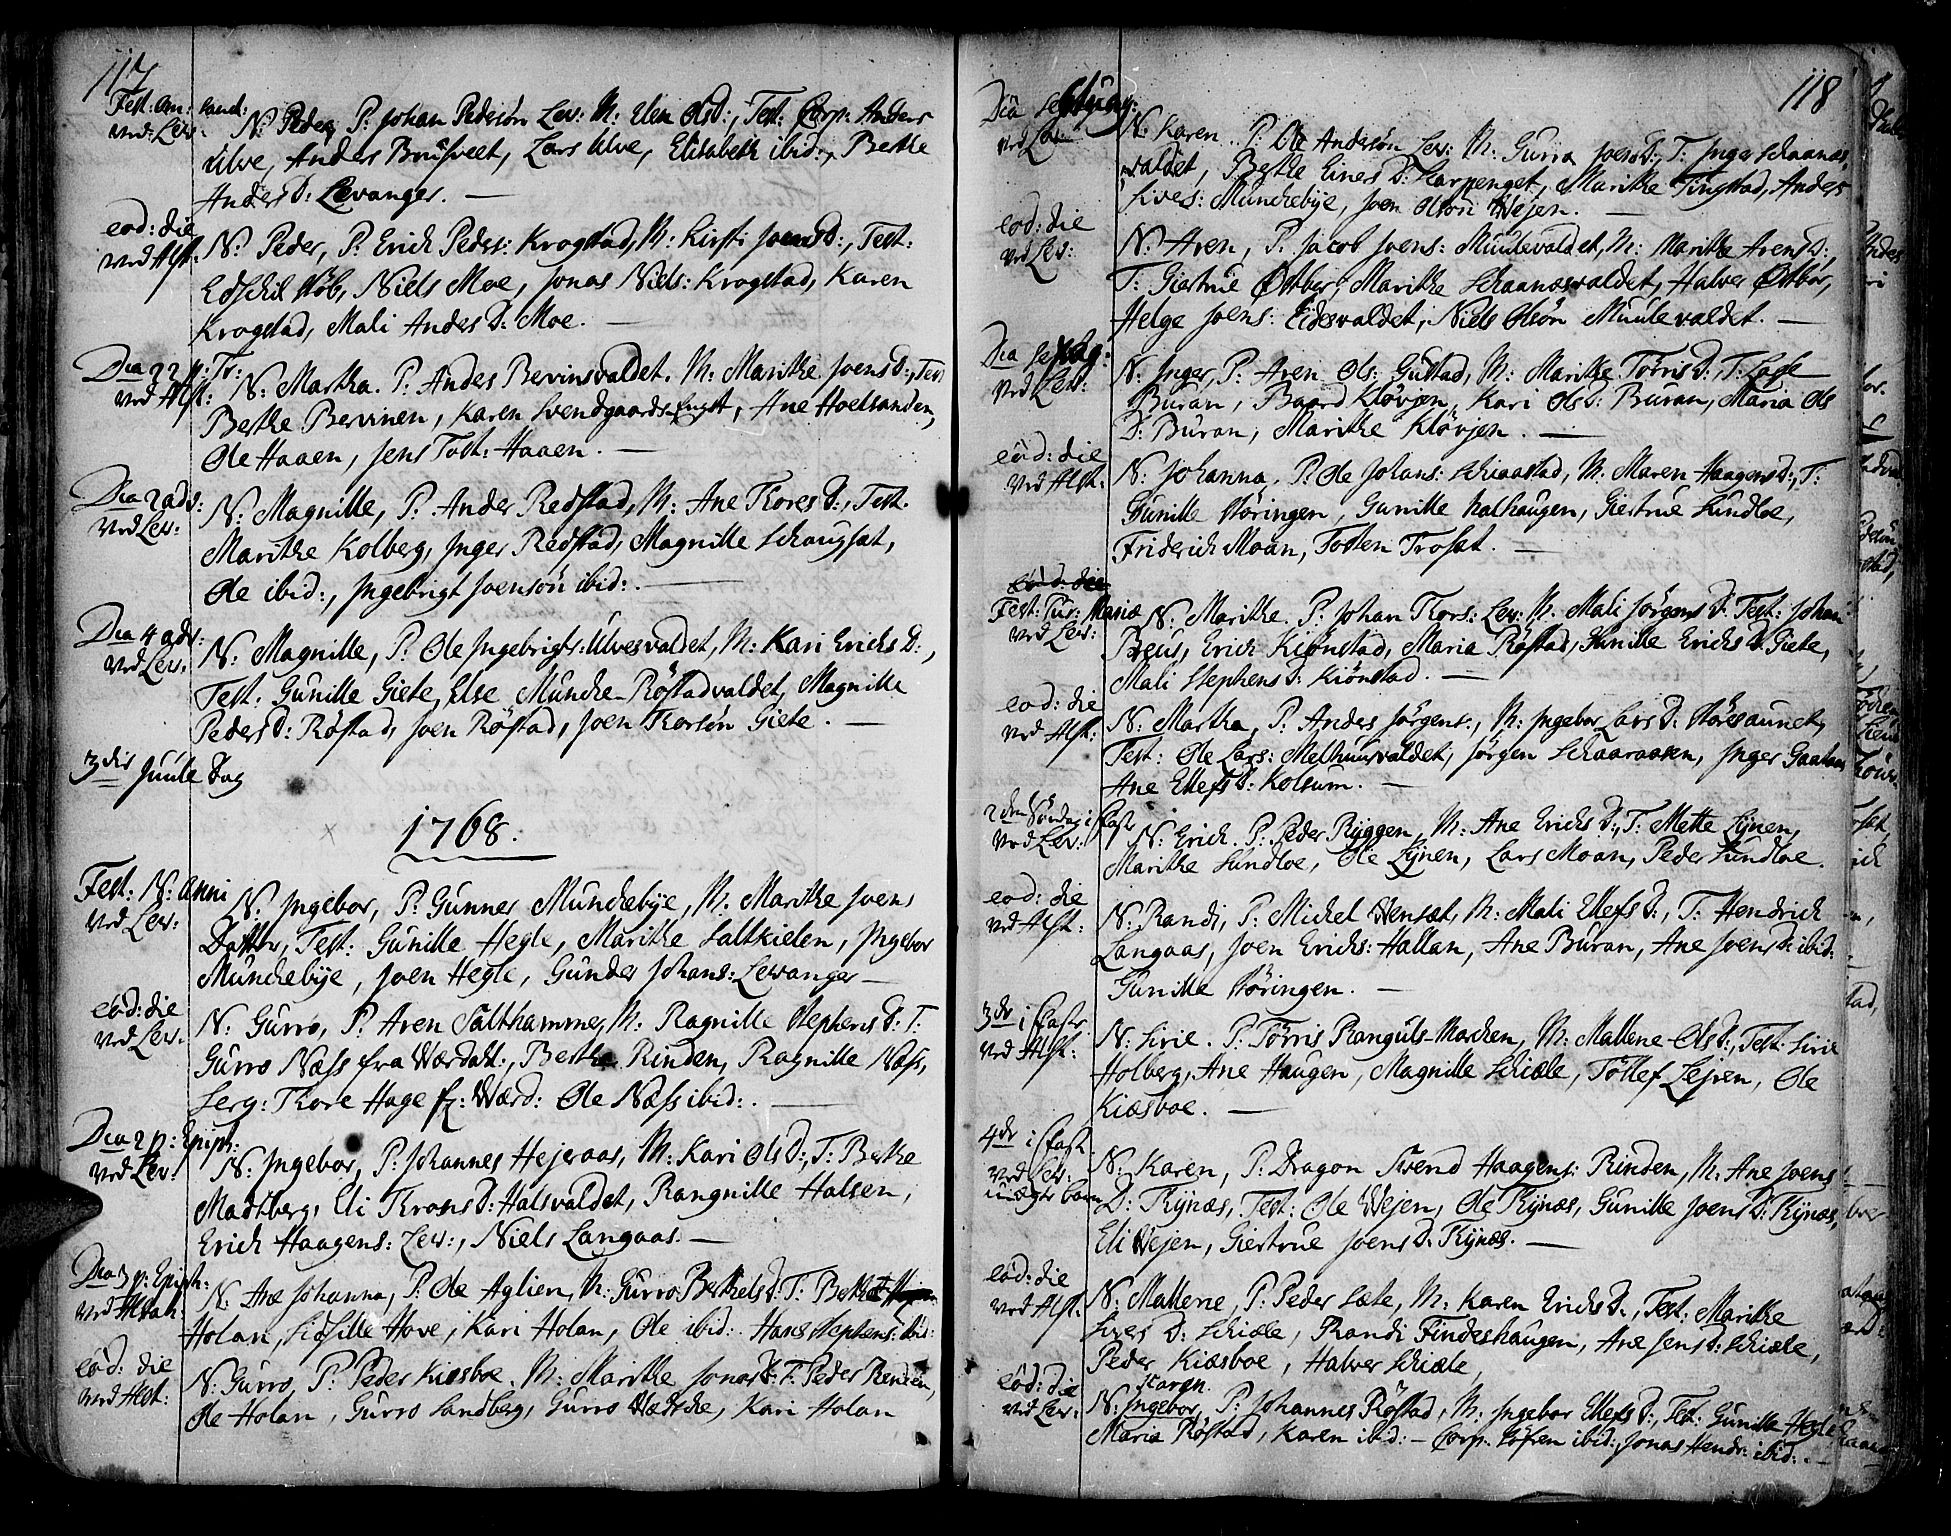 117
Fest: Om: sanct:
ved: Lev: N: Peder, P: Johan Pedersön Lev: M: Elen OlsD:, Test: Corp: Anders
Ulve, Anders Brusveet, Lars Ulve, Elisabeth ibid:, Berthe
AndersD: Levanger. —
eod: die
ved Alst: N: Peder, P: Erich Peders: Krogstad, M: Kirsti JoensD:, Test:
Edschil Stöb, Niels Moe, Jonas Niels: Krogstad, Karen
Krogstad, Mali AndersD: Moe. —
Dca 22 p: Tr:
ved Alst: N: Martha. P: Anders Bervinsvaldet. M: Marithe JoensD:, Test
Berthe Bervinen, Karen Svendgaards-Engst, Ane Hoelsanden,
Ole Haaen, Jens Tost: Haaen. —
Dca 2 adv:
ved Lev: N: Magnille, P: Ander Redstad, M: Ane ThoresD:, Test.
Marithe Kolberg, Inger Redstad, Magnille Schougsæt,
Ole ibid:, Ingebrigt Joensön ibid:. —
Dca 4 adv:
ved Lev. N: Magnille, P: Ole Ingebrigts: Ulvesvaldet, M: Kari ErichsD:,
Test: Gunille Giete, Else Muncke-Röstadvaldet, Magnille
PedersD: Röstad, Joen Röstad, Joen Thorsön Giete. —
3die Juule Dag
1768.
Fest: N: anni
ved Lev: N: Ingebor, P: Gunner Munckebÿe, M: Marithe Joens
Datter, Test: Gunille Hegle, Marithe Saltkielen, Ingebor
Munckebÿe, Joen Hegle, Gunder Johans: Levanger —
eod: die
ved Lev. N: Guro, P: Aren Salthamme, M: Ragnille StephensD: T:
Guro Næss fra Værdal:, Bertha Rinden, Ragnille Næss,
Serg: Thore Hage fr: Værd: Ole Næss ibid:. —
Dca 2 p: Epiph:
ved Lev: N: Ingebor, P: Johannes Hejeraas, M: Kari OlsD:, T: Berthe
Madtberg, Eli ThronsD: Halsvaldet, Rangnille Halsen,
Erich Haagens: Lev:, Niels Langaas. —
Dca 3 p: Epiph:
ved Alstah: N: Ane Johanna, P: Ole Aglien, M: Gurro BerthelsD: T: Berthe
Holan, Sidsille Hove, Kari Holan, Ole ibid: Hans Stephens: ibid:
eod: die
ved Alst: N: Gurro, P: Peder Kiæsboe. M: Marithe JonasD: T: Peder Renden,
Ole Holan, Gurro Sandberg, Gurro Vædsche, Kari Holan
118
Dca Septuag:
ved Lev N: Karen. P: Ole Andersön Lev: M: Gurra JoensD:, T: Inger Schaanes-
valdet, Berthe EinersD: Karpenget, Marithe Tingstad, Anders
Sivers: Munckebÿe, Joen Olsön Wejen. —
eod: die
ved Lev: N: Aren, P: Jacob Joens: Muulevaldet, M: Marithe ArensD:,
T: Giertrue Østbor, Marithe Schaanesvaldet, Halver Østbor,
Helge Joens: Eidsvaldet, Niels Olsön Muulevaldet. —
Dca Sexag:
ved Lev: N: Inger, P: Aren Ols: Gustad, M: Marithe TörrisD:, T: Lasse
Buran, Baard Klövjen, Kari OlsD: Buran, Maria Ols
D: Buran, Marithe Klövjen. —
eod: die
ved Alst: N: Johanna, P: Ole Johans: Schiaastad, M: Maren HaagensD:, T:
Gunille Störingen, Gunille Nalhaugen, Giertrue Sundloe,
Friderich Moan, Tosten Trosæt. —
eod: die
Fest: Pur: Mariæ
ved Lev: N: Marithe. P: Johan Thors: Lev: M: Mali JörgensD: Test: Johan
Preus, Erich Kiönstad, Maria Röstad, Gunille ErichsD: Giete,
Mali StephensD: Kiönstad. —
eod: die
ved Alst: N: Martha, P: Anders Jörgens:, M: Ingebor LarsD: Störesaunet,
Test: Ole Lars: Melhuusvaldet, Jörgen Schaaraasen, Inger Gaatom
Ane EllefsD: Kolsum. —
2den Söndag i Faste
ved Lev: N: Erich. P: Peder Rÿggen, M: Ane ErichsD:, T: Mette Lÿnen,
Marithe Sundloe, Ole Lÿnen, Lars Moan, Peder Sundloe.
eod: die
ved Alst: N: Randi, P: Michel Wensæt, M: Mali EllefsD:, T: Hendrich
Langaas, Joen Erichs: Hallan, Ane Buran, Ane JoensD: ibid:
Gunille Störingen. —
3de i Fast:
ved Alst: N: Sirie. P: Törris Ranguls-Marchen, M: Mallene OlsD:, Test: Sirie
Holberg, Ane Haugen, Magnille Schiæle, Töllef Lejren, Ole
Kiæsboe. —
4de i Fast
ved Lev:
uægte barn N: Karen, P: Dragon Svend Haagens: Rinden, M: Ane Joens
D: Rÿnæs, Test: Ole Wejen, Ole Rÿnæs, Gunille JoensD: Rÿnæs,
Eli Wejen, Giertrue JoensD: Rÿnæs. —
eod: die
ved Alst: N: Mallene, P: Peder Sæte, M: Karen ErichsD:, Test: Marithe
Sivers D: Schiæle, Randi Findeshaugen, Ane JensD: Schiæle,
Peder Kiæsboe, Halver Schiæle,
eod: die
ved Lev: Karen.
N: Ingebor, P: Johannes Röstad, M: Ingebor EllefsD:, Test: Gunille Hegle
Maria Röstad, Karen ibid: – Corp: ibid: Jonas Hendr: ibid:. —